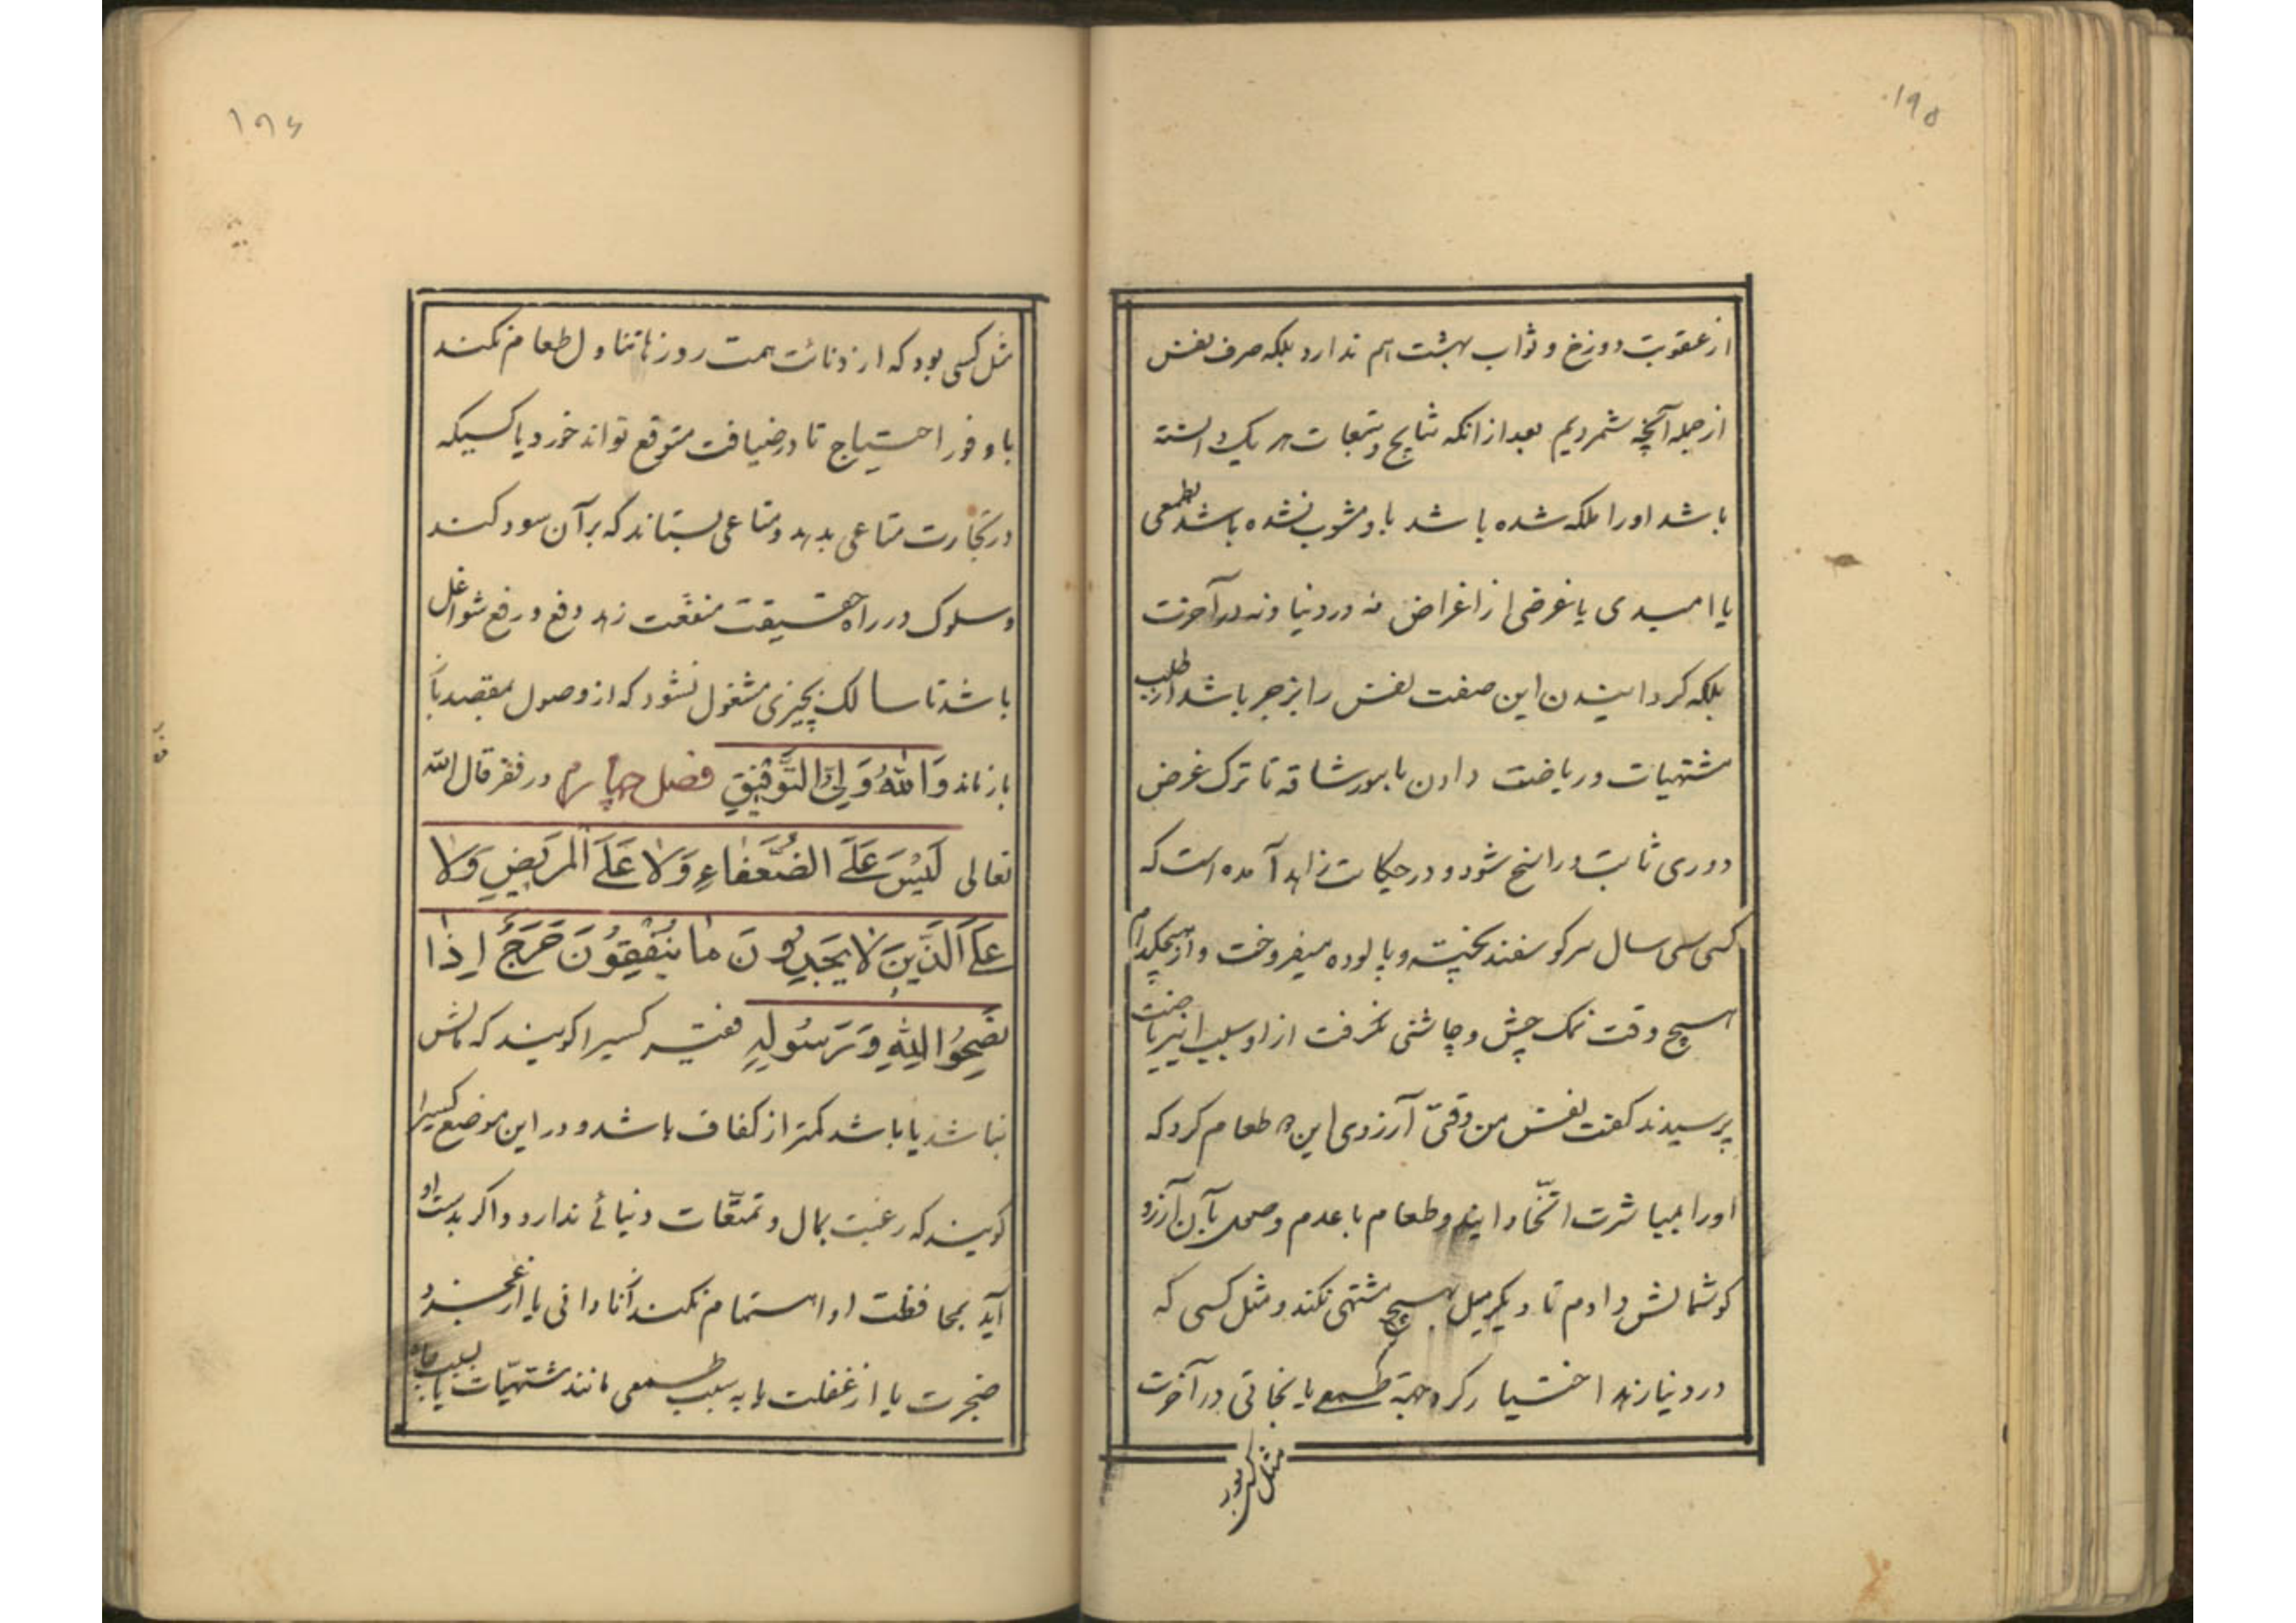 ۱۹۵
از عقوبت دوزخ و ثواب بهشت هم ندارد بلکه صرف نفس
از جمله آنچه شمردیم بعد از انکه نتایج و تبعات هر یک دانسته
باشد او را ملکه شده باشد با و مشوب نشده باشد بطمعی
یا امیدی یا غرضی از اغراض نه در دنیا و نه در آخرت
بلکه کردانیدن این صفت نفس را بزجر باشد از طلب
مشتهیات و ریاضت دادن بامور شاقه تا ترک غرض
دوری ثابت و راسخ شود و در حکایت زاهد آمده است که
کسی سی سال سر کوسفند پخته و پالوده میفروخت و از هیچکدام
هیچ وقت نمک چش و چاشنی نکرفت از او سبب این ریاضت
پرسیدند کفت نفس من وقتی آرزوی این دو طعام کرد که
او را مباشرت اتخاذ این دو طعام با عدم وصول بآن آرزو
کوشمالش دادم تا دیکر میل بهیچ مشتهی نکند و مثل کسی که
در دنیا زهد اختیار کرد جهة طمع یا نجاتی در آخرت
مثل کسی بود
۱۹۶
مثل کسی بود که از دنائت همت روزها تناول طعام نکند
با وفور احتیاج تا در ضیافت متوقع تواند خورد یا کسیکه
در تجارت متاعی بدهد و متاعی بستاند که بر آن سود کند
و سلوک در راه حقیقت منفعت زهد دفع و رفع شواغل
باشد تا سالک بچیزی مشغول نشود که از وصول بمقصد بآن
باز ماند وَاللهُ وَلِیُّ التَّوْفِیقِ فصل چهارم در فقر قال الله
تعالی لَیْسَ عَلَی الضُّعَفاءِ وَلا عَلَی المَرِیضِ وَلا
عَلَی الَّذِینَ لا یَجِدُونَ ما یُنْفِقُونَ حَرَجٌ اِذا
نَصَحُوا لِلّهِ وَرَسُولِهِ فقیر کسیرا کویند که مالش
نباشد یا باشد کمتر از کفاف باشد و در این موضع کسیرا
کویند که رغبت بمال و تمتّعات دنیائی ندارد و اکر بدست او
آید بمحافظت او اهتمام نکند نه از نادانی یا از عجز و
ضجرت یا از غفلت یا به سبب طمعی مانند مشتهیّات یا بسبب جاه